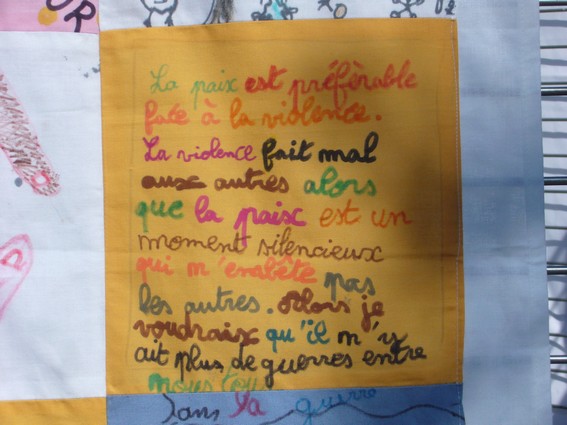 UR
La paix est préfèrable
face à la violence.
La violence fait mal
aux autres alors
que la paix est un
moment silencieux
qui m'embête pas
les autres. Alors je
voudraix qu'il m'y
ait plus de guerres entre
nous tou
Dans la guerre